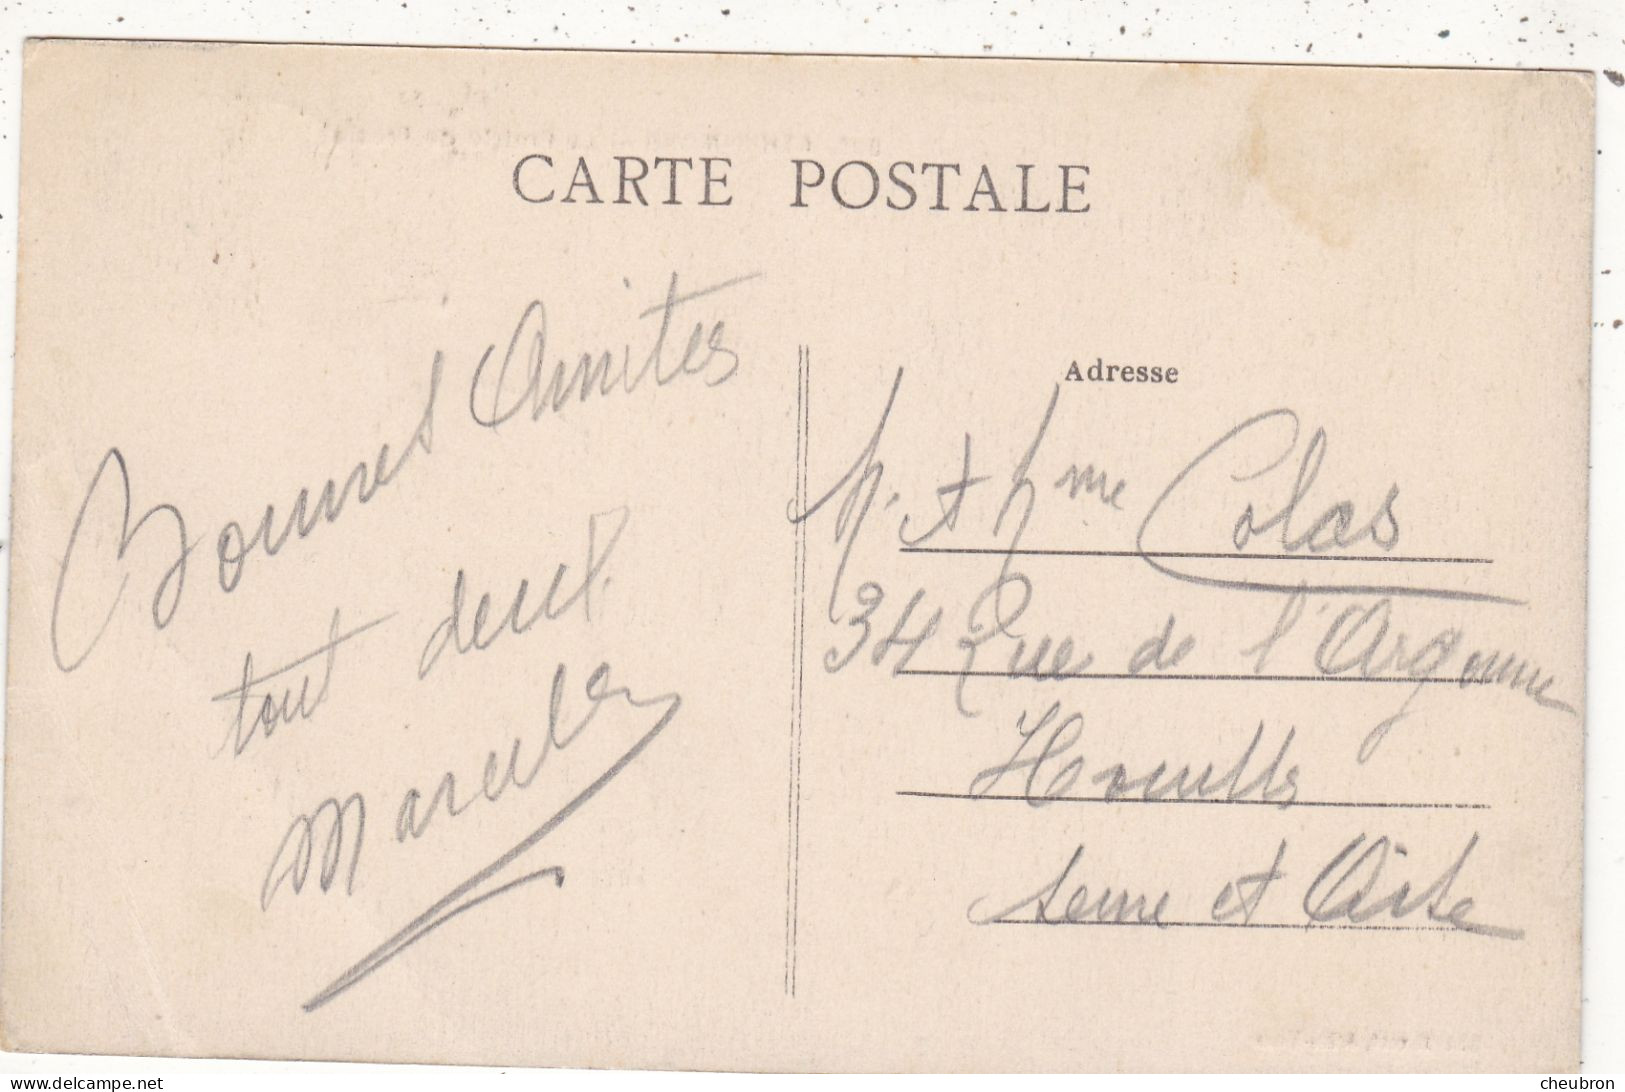 CARTE POSTALE
Bonnes Amities
tout deux.
Marcel
Adresse
M. et Mme Colas
34 Rue de l'Argonne
Houilles
Seine et Oise
Delcampe.net
cheubron